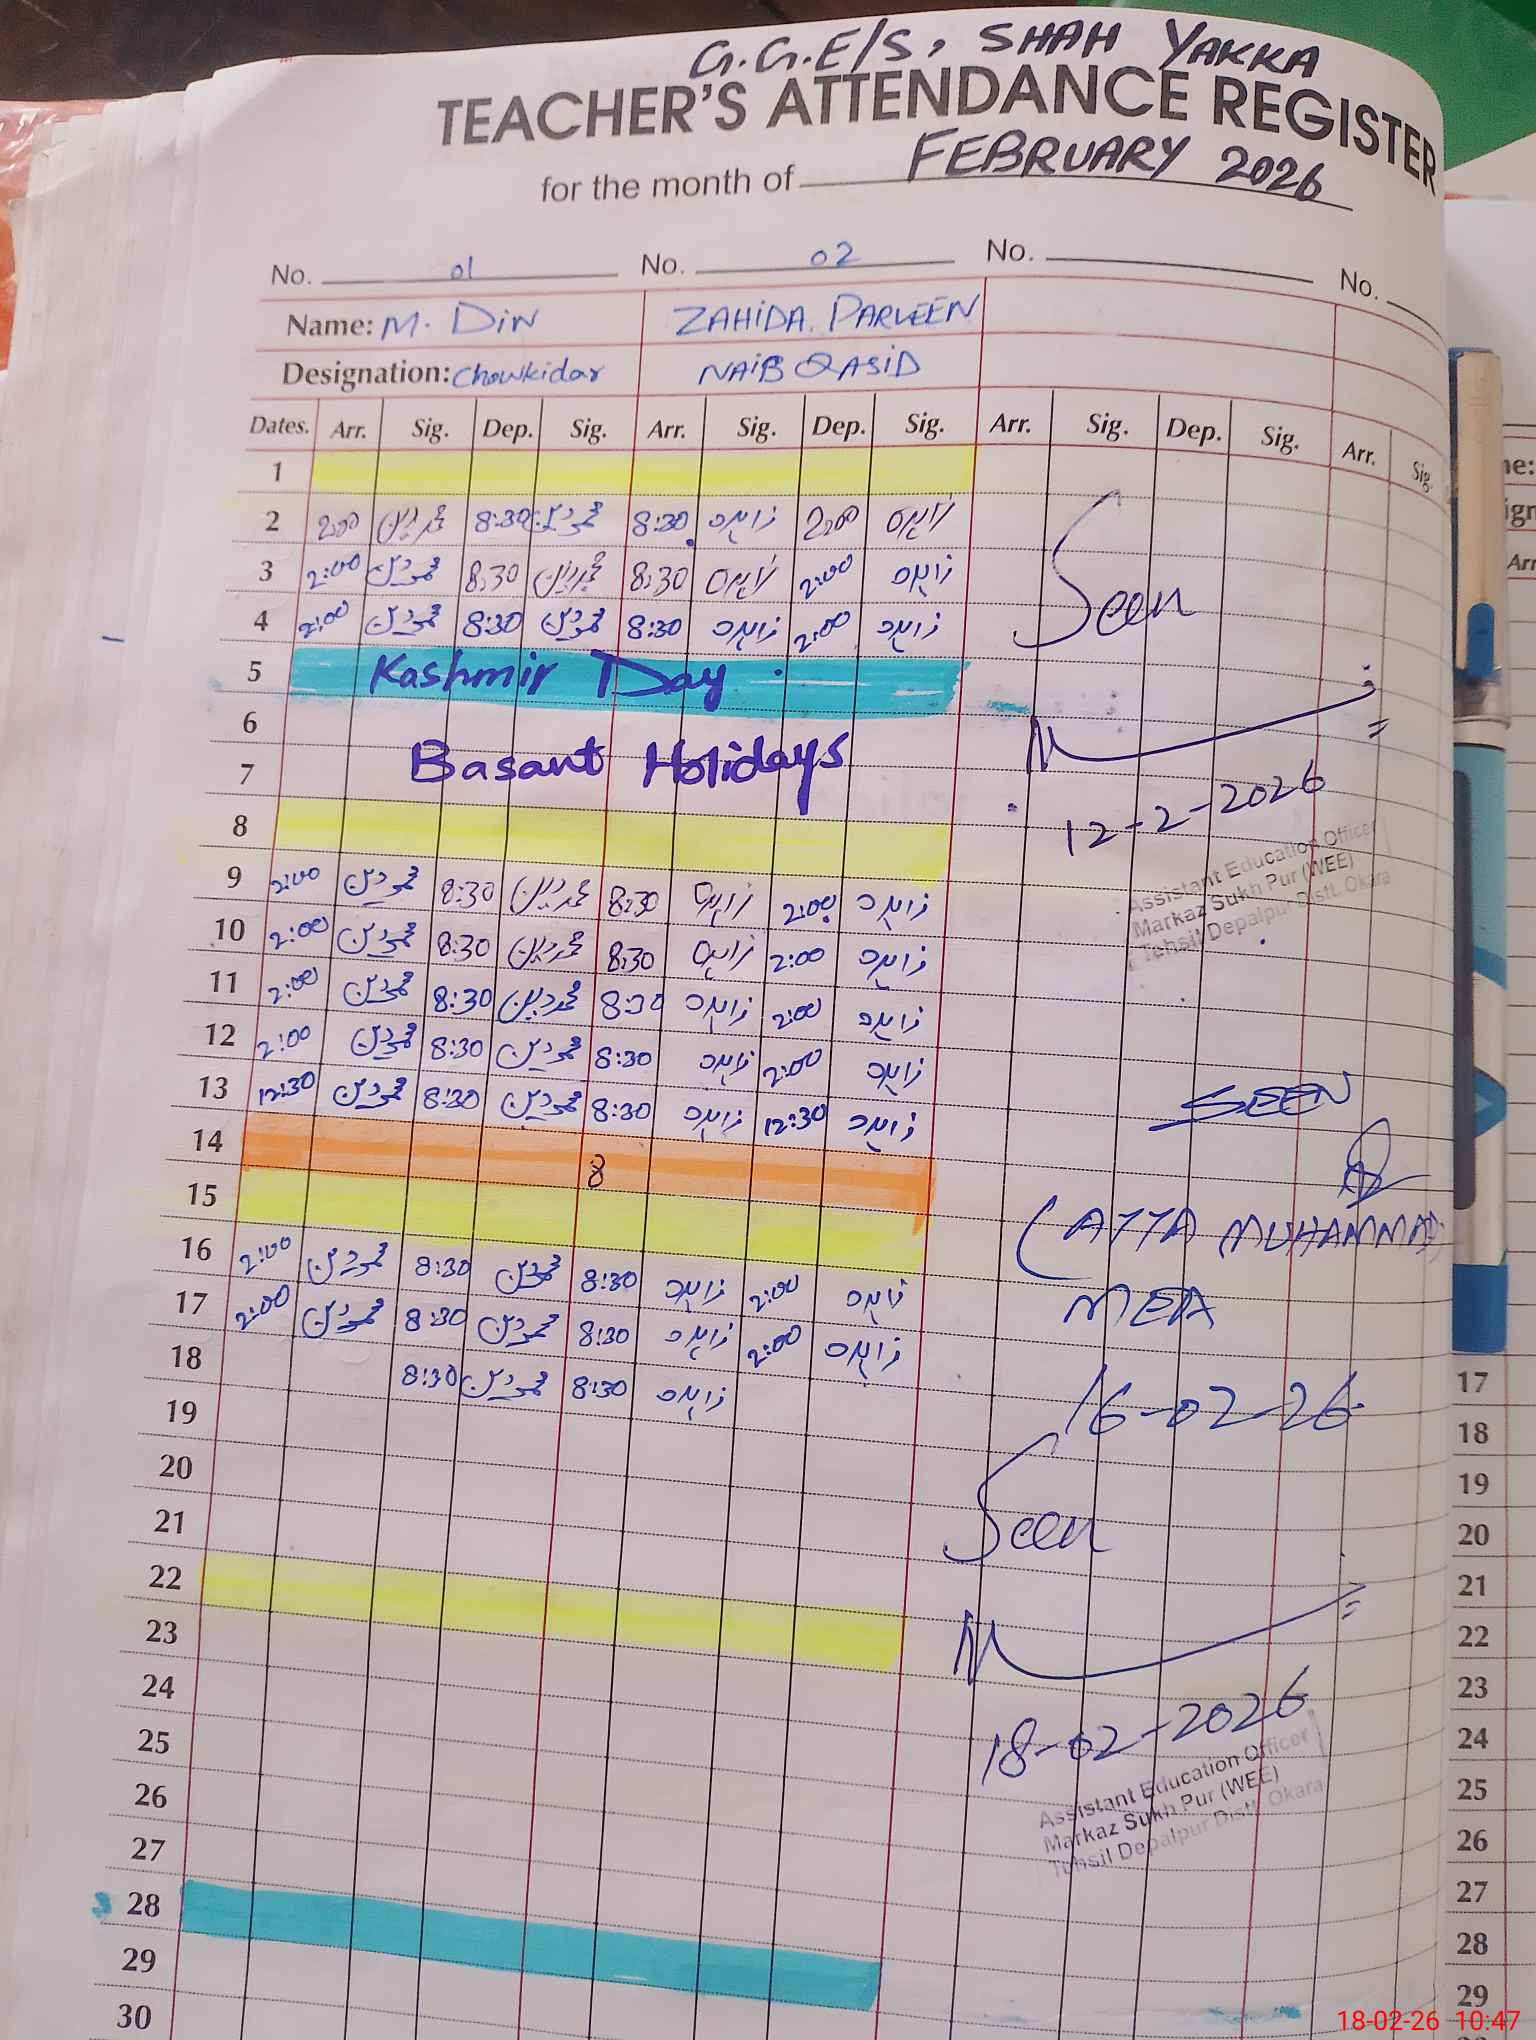 G.G.E/S, SHAH YAKKA
TEACHER'S ATTENDANCE REGISTER
for the month of FEBRUARY 2026
No. 01 No. 02 No. No.
Name: M. DiN ZAHiDA. PARVEEN
Designation: Chowkidar NAiB QASiD
Dates. Arr. Sig. Dep. Sig. Arr. Sig. Dep. Sig. Arr. Sig. Dep. Sig. Arr. Sig.
1
2 2:00 محمد دین 8:30 محمد دین 8:30 زاہدہ 2:00 زاہدہ
3 2:00 محمد دین 8:30 محمد دین 8:30 زاہدہ 2:00 زاہدہ
4 2:00 محمد دین 8:30 محمد دین 8:30 زاہدہ 2:00 زاہدہ
Seen
5 Kashmir Day
6
7 Basant Holidays
12-2-2026
8
Assistant Education Officer
Markaz Sukh Pur (WEE)
Tehsil Depalpur Distt. Okara
9 2:00 محمد دین 8:30 محمد دین 8:30 زاہدہ 2:00 زاہدہ
10 2:00 محمد دین 8:30 محمد دین 8:30 زاہدہ 2:00 زاہدہ
11 2:00 محمد دین 8:30 محمد دین 8:30 زاہدہ 2:00 زاہدہ
12 2:00 محمد دین 8:30 محمد دین 8:30 زاہدہ 2:00 زاہدہ
13 12:30 محمد دین 8:30 محمد دین 8:30 زاہدہ 12:30 زاہدہ
SEEN
14 8
15
(ATTA MUHAMMAD)
MEA
16-02-26
16 2:00 محمد دین 8:30 محمد دین 8:30 زاہدہ 2:00 زاہدہ
17 2:00 محمد دین 8:30 محمد دین 8:30 زاہدہ 2:00 زاہدہ
18 8:30 محمد دین 8:30 زاہدہ
19
20
21
Seen
22
23
24
18-02-2026
25
Assistant Education Officer
Markaz Sukh Pur (WEE)
Tehsil Depalpur Distt. Okara
26
27
28
29
30
ne:
ign
Arr
17
18
19
20
21
22
23
24
25
26
27
28
29
18-02-26 10:47